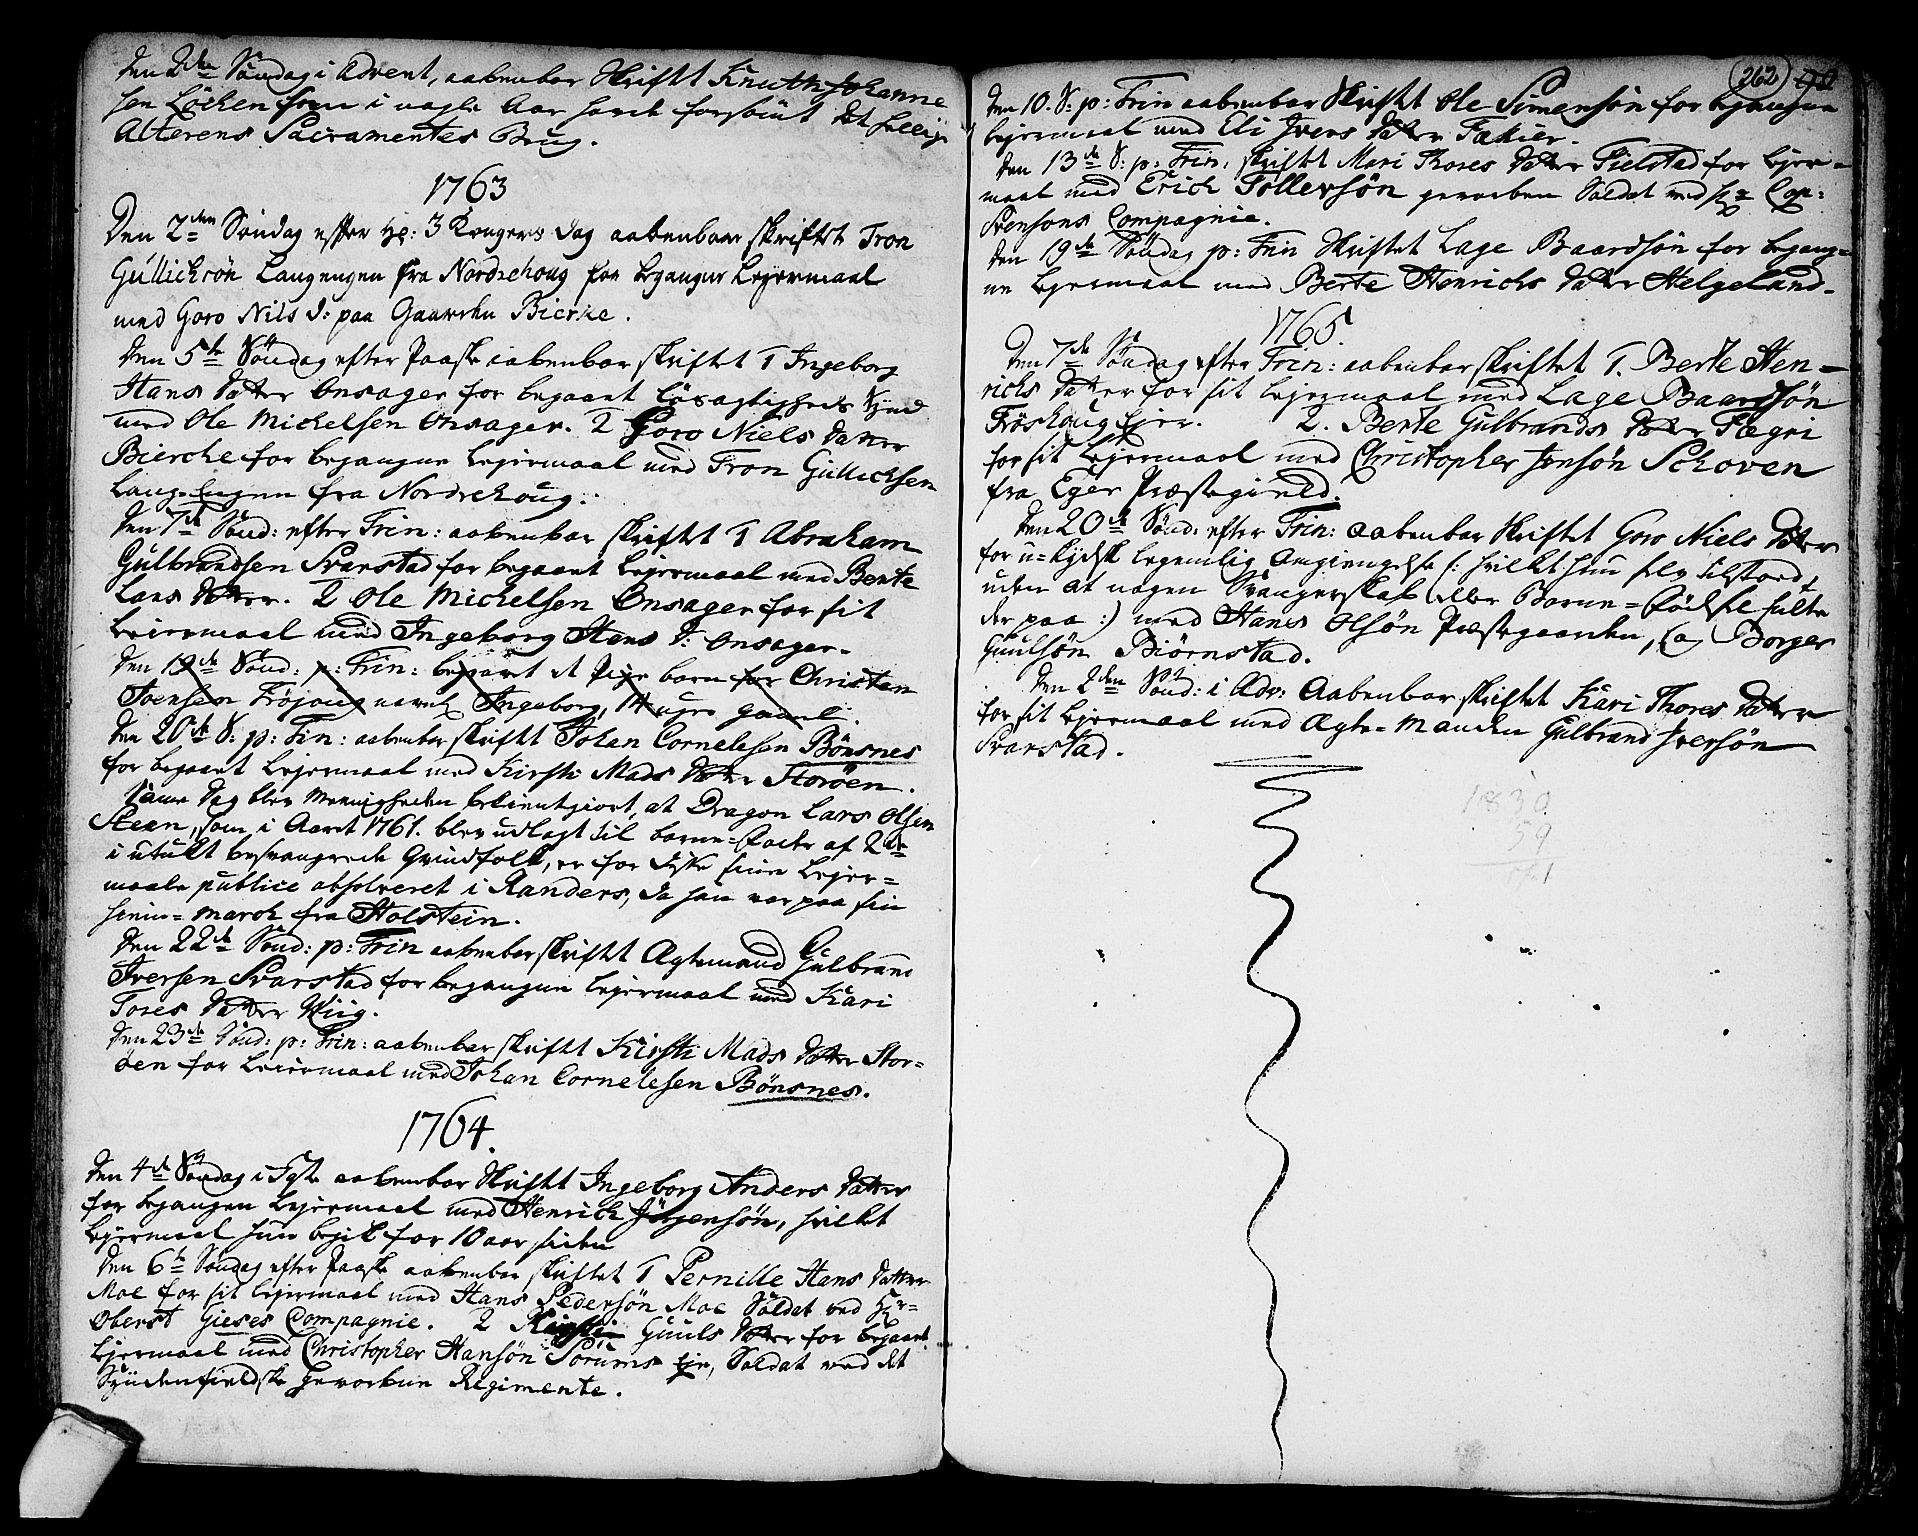 Den 2den Söndag i Advent, aabenbar Skriftet Knuth Johanne
sen Löcken som i nogle Aar havde forsömt det hellige
Alterens Sacramentes Brug.
1763
Den 2den Söndag efter H: 3 Kongers Dag aabenbar skriftet Tron
Gullichsön Langengen fra Nordrehoug for begangne Lejermaal
med Goro Nils D: paa Gaarden Bierke.
Den 5te Söndag efter Paaske aabenbar skriftet 1 Ingeborg
Hans Datter Onsager for begaaet Lösagtigheds Synd
med Ole Michelsen Onsager. 2 Goro Niels Datter
Bierche for begangne Lejermaal med Tron Gullichsen
Lang-Engen fra Nordrehoug.
Den 7de Sönd: efter Trin: aabenbar skriftet 1 Abraham
Gulbrandsen Svarstad for begaaet Lejermaal med Berte
Lars Datter. 2 Ole Michelsen Onsager for sit
Leiermaal med Ingeborg Hans D: Onsager.
Den 19de Sönd: p: Trin: begravet et Pige barn for Christen
Svensen Fröjoug navnl Ingeborg, 14 uger gaml.
Den 20de S: p: Trin: aabenbar skriftet Johan Cornelesen Bönsnes
for begaaet Lejermaal med Kirsti Mads Datter Storöen.
Samme Dag blev Menigheden bekientgiort, at Dragon Lars Olsen
Steen, som i Aaret 1761. blev udlagt til barne-Fader af 2de
i utugt besvangrede Qvindfolk, er for disse sine Lejer=
maale publice absolveret i Randers, da han var paa sin
hiem-march fra Holstein.
Den 22de Sönd: p: Trin aabenbar skriftet Ægtemand Gulbrand
Iversen Svarstad for begangne Lejermaal med Kari
Tores Datter Wiig.
Den 23de Sönd: p: Trin: aabenbar skriftet Kirsti Mads Datter Stor=
öen for Leiermaal med Johan Cornelesen Bönsnes.
1764.
Den 4de Söndag i Fast aabenbar Skriftet Ingeborg Anders Datter
for begangen Lejermaal med Henrich Jörgensön, hvilket
Lejermaal hun begik for 10 aar siden
Den 6te Söndag efter Paaske aabenbar skriftet 1 Pernille Hans Datter
Moe for sit Lejermaal med Hans Pedersön Moe Soldat ved Hr=
Oberst Gieses Compagnie. 2 Kirsti Guuls Datter for begaaet
Lejermaal med Christopher Hansön Sörums Eje, Soldat ved det
Syndenfieldske Gevorbne Regimente.
262
Den 10. S: p: Trin aabenbar Skriftet Ole Simensön for begangne
Lejermaal med Eli Ivers Datter
Den 13de S: p: Trin: skriftet Mari Thores Datter Fielstad for Lejer=
maal med Erich Tollevsön gevorben Soldat ved Cap:
Svensons Compagnie.
Den 19de Söndag p: Trin Skriftet Lage Baardsön for begang=
ne Lejermaal med Berte Henrichs Datter Helgeland.
1765.
Den 7de Söndag efter Trin: aabenbar skriftet 1. Berte Hen=
richs Datter for sit Lejermaal med Lage Baardsön
Fröshoug Ejer. 2. Berte Gulbrands Datter Flegri
for sit Lejermaal med Christopher Jensön Schoven
fra Eger Præstegield.
Den 20de Sönd: efter Trin: aabenbar Skriftet Goro Niels Datter
for u-kydsk legemlig Omgiengelse (: hvilket hun selv tilstoed,
uden at nogen Svangerskab eller Barne=Födsel fulte
der paa :) med Hans Olsön Præstegaarden, og Borger
Guulsön Biörnstad.
Den 2den Sönd: i Adv: Aabenbar skriftet Kari Thores Datter
for sit Lejermaal med Ægte-Manden Gulbrand Iversön
Svarstad.
1830
59